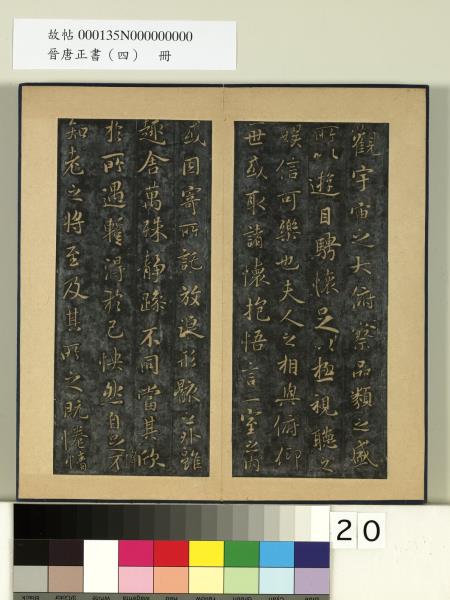 故帖 000135N000000000
晉唐正書（四） 冊
觀宇宙之大俯察品類之盛
所以遊目騁懷足以極視聽之
娛信可樂也夫人之相與俯仰
一世或取諸懷抱悟言一室之內
或因寄所託放浪形骸之外雖
趣舍萬殊靜躁不同當其欣
於所遇暫得於己快然自足不
知老之將至及其所之既惓情
20
Black
3/Color
White
Magenta
Red
Yellow
Green
Cyan
Blue